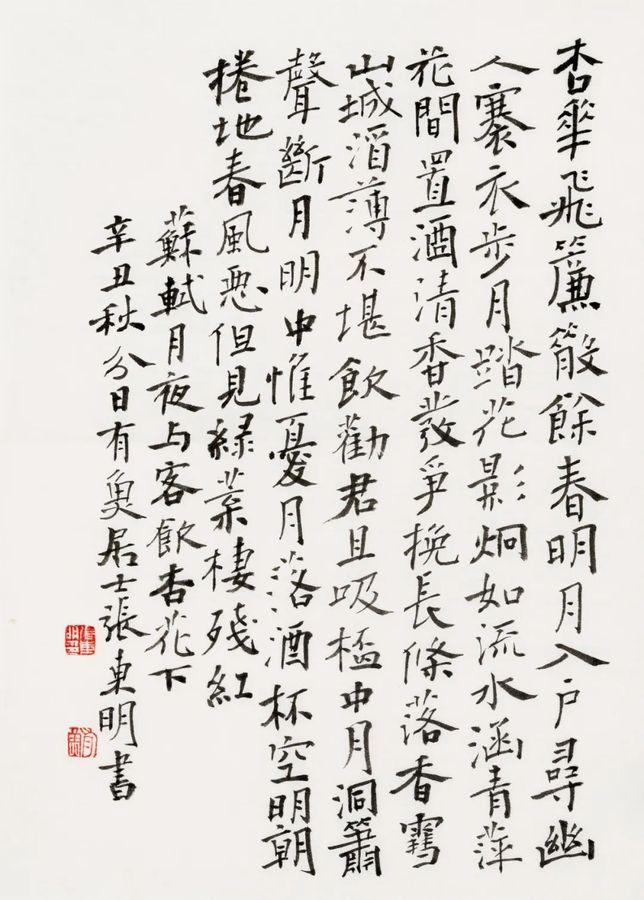 杏華飛簾散餘春明月入户尋幽
人褰衣步月踏花影炯如流水涵青萍
花間置酒清香發爭挽長條落香雪
山城酒薄不堪飲勸君且吸桮中月洞簫
聲斷月明中惟憂月落酒杯空明朝
捲地春風惡但見綠葉棲殘紅
蘇軾月夜与客飲杏花下
辛丑秋分日有魚居士張東明書